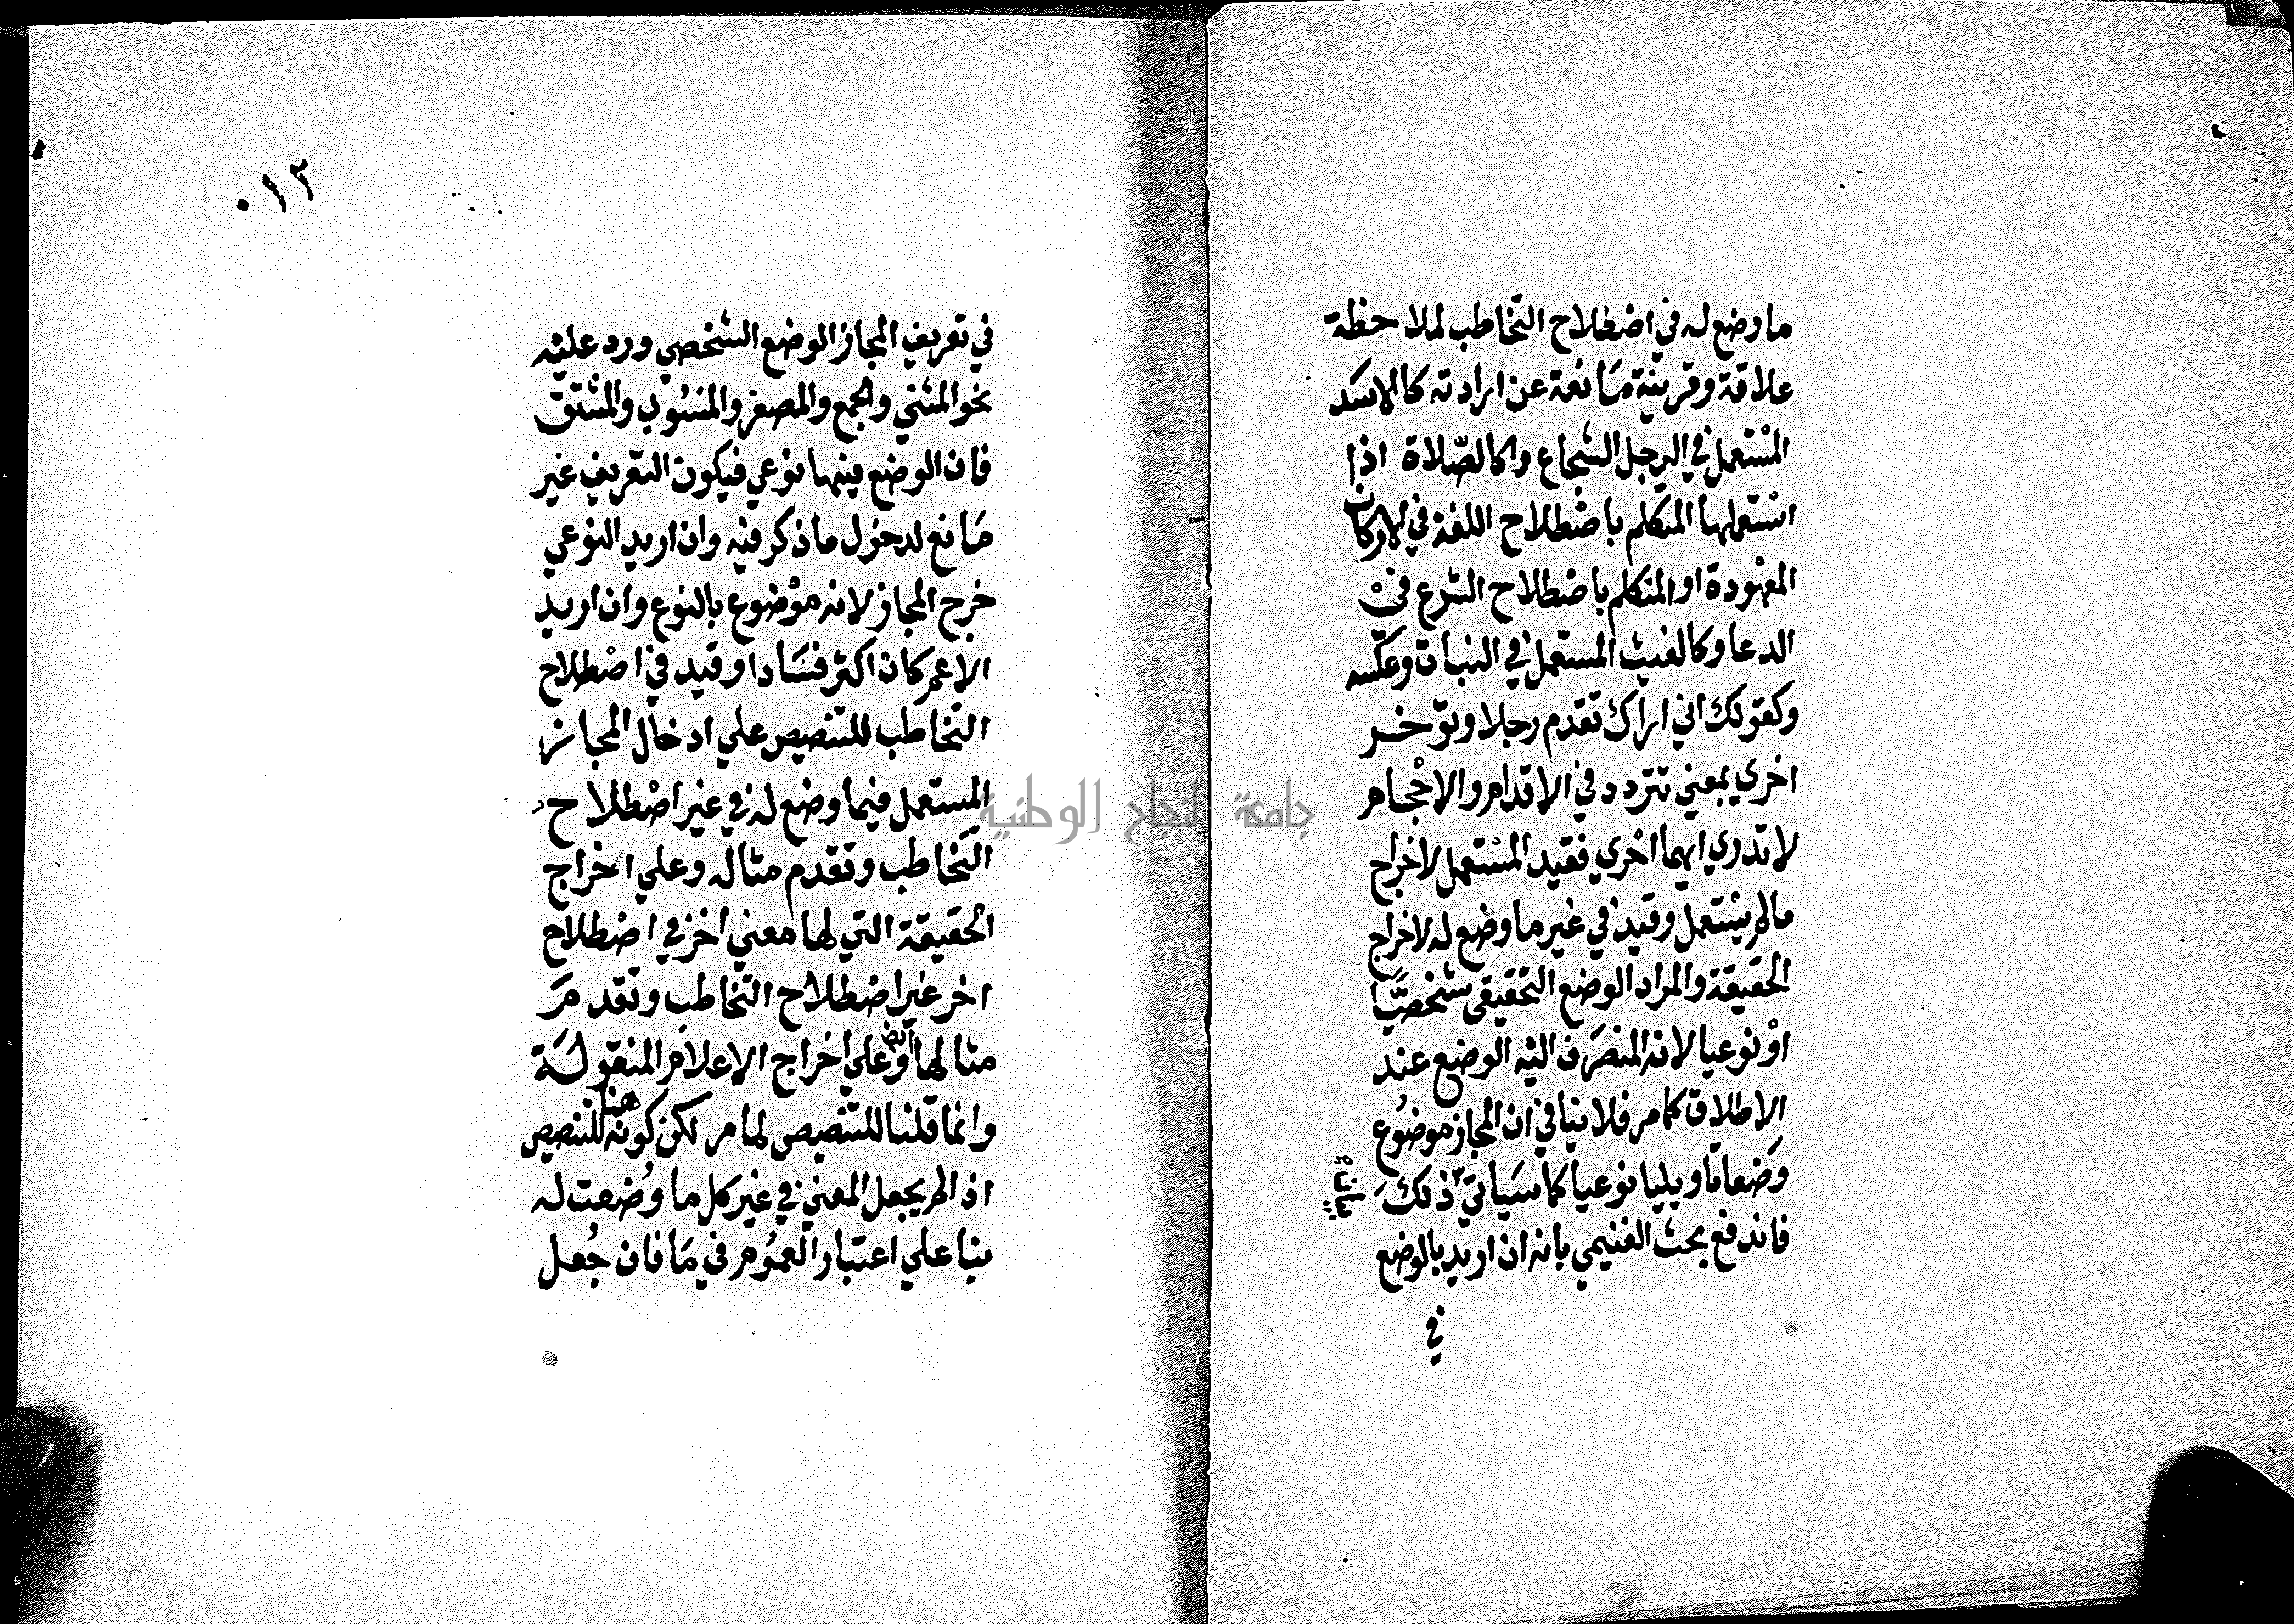 ما وضع له في اصطلاح التخاطب لملاحظة
علاقة وقرينة مانعة عن ارادته كالاسد
المستعمل في الرجل الشجاع وكالصلاة اذا
استعملها المتكلم باصطلاح اللغة في الاركان
المعهودة او المتكلم باصطلاح الشرع في
الدعا وكالغيث المستعمل في النبات وعكسه
وكقولك اني اراك تقدم رجلا وتؤخر
اخري بمعني تتردد في الاقدام والاحجام
لا تدري ايهما احري فقيد المستعمل لاخراج
مالم يستعمل وقيد في غير ما وضع له لاخراج
الحقيقة والمراد الوضع التحقيقي شخصيا
او نوعيا لانه المنصرف اليه الوضع عند
الاطلاق كما مر فلا ينافي ان المجاز موضوع
وضعا تاويليا نوعيا كما سياتي ذلك
فاندفع بحث الغنيمي بانه ان اريد بالوضع
في
٠١٣
في تعريف المجاز الوضع الشخصي ورد عليه
نحو المثني والجمع والمصغر والمنسوب والمشتق
فان الوضع فيها نوعي فيكون التعريف غير
مانع لدخول ما ذكر فيه وان اريد النوعي
خرج المجاز لانه موضوع بالنوع وان اريد
الاعم كان اكثر فسادا وقيد في اصطلاح
التخاطب للتنصيص علي ادخال المجاز
المستعمل فيما وضع له في غير اصطلاح
التخاطب وتقدم مثاله وعلي اخراج
الحقيقة التي لها معني اخر في اصطلاح
اخر غير اصطلاح التخاطب وتقدم
مثالها ايضا وعلي اخراج الاعلام المنقولة
وانما قلنا للتنصيص لما مر لكن كونه هنا للتنصيص
اذا لم يجعل المعني في غير كل ما وضعت له
بنا علي اعتبار العموم في ما فان جعل
جامعة النجاح الوطنية